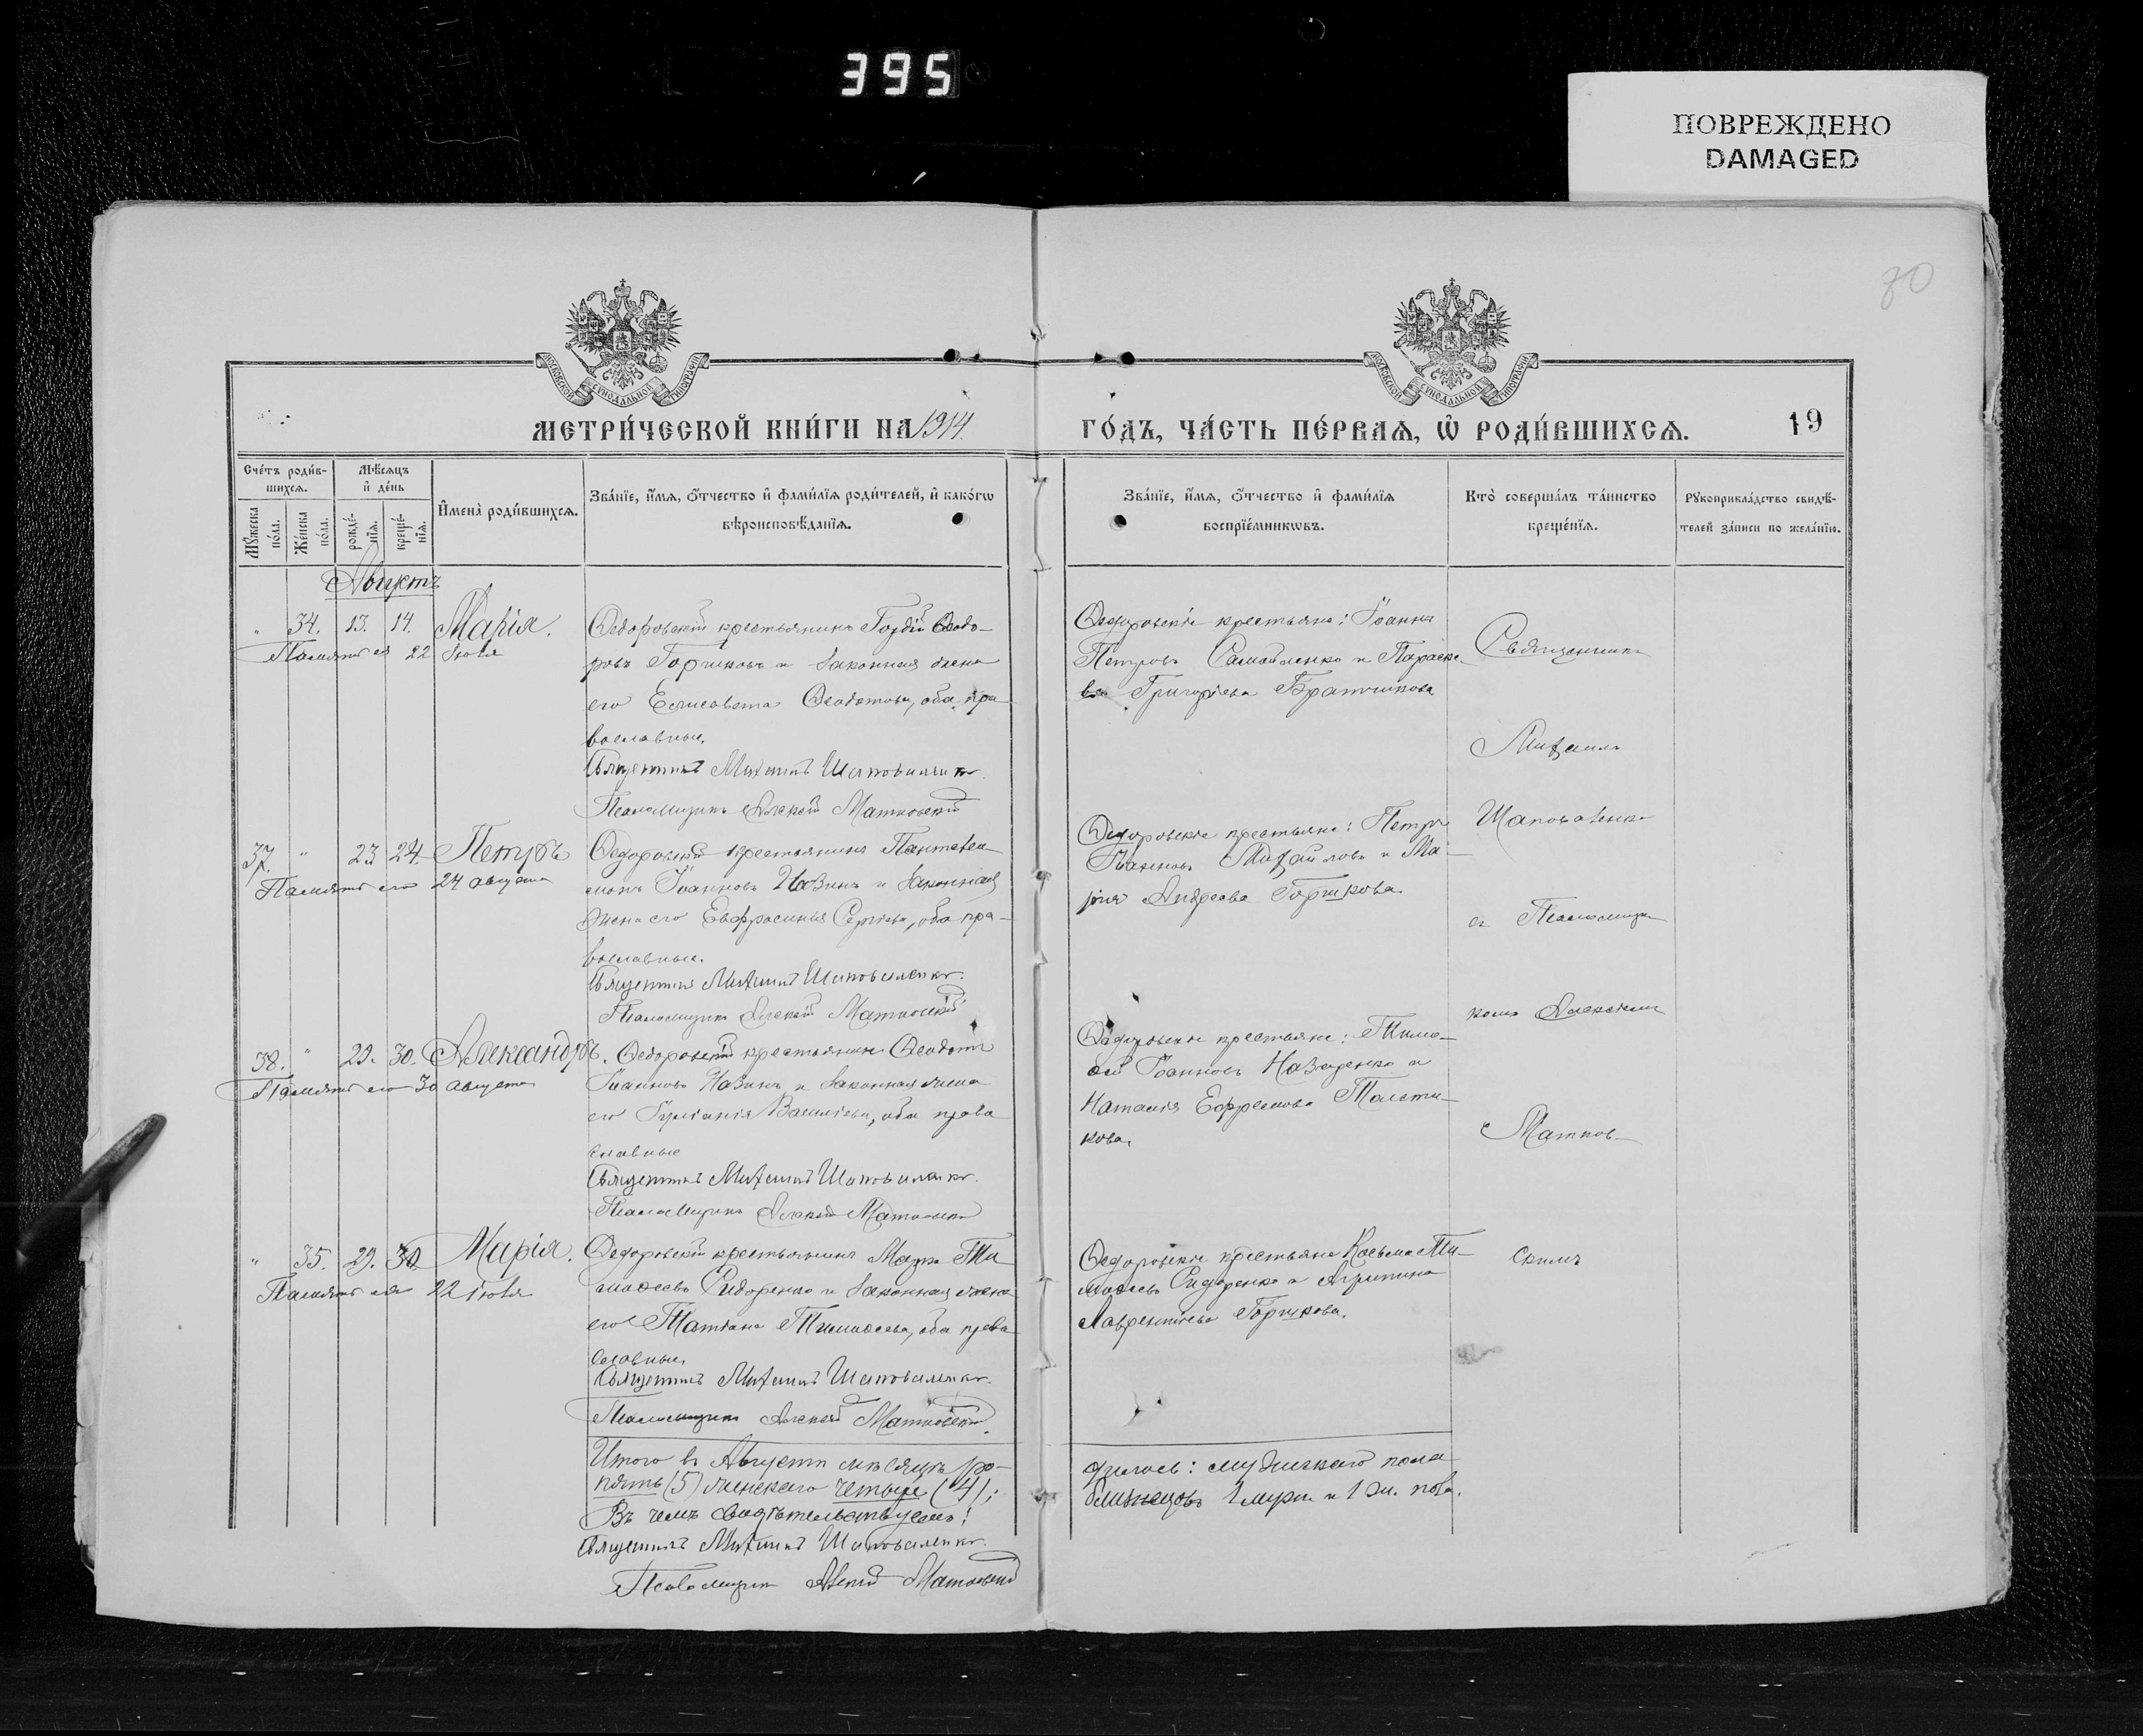 395
ПОВРЕЖДЕНО
DAMAGED
80
МОСКОВСКОЙ СѴНОДАЛЬНОЙ ТИПОГРАФІИ
МОСКОВСКОЙ СѴНОДАЛЬНОЙ ТИПОГРАФІИ
МЕТРИ́ЧЕСКОЙ КНИ́ГИ НА 1914.
ГО́ДЪ, ЧА́СТЬ ПЕ́РВАЯ, Ѡ҆ РОДИ́ВШИХСЯ.
19
Сче́тъ роди́в-
шихся.
Мѣ́сяцъ
и҆ де́нь
Мꙋ́жеска
по́ла.
Же́нска
по́ла.
рожде́-
нїя.
креще́-
нїя.
И҆мена̀ роди́вшихся.
Зва́нїе, и҆́мя, ѻ҆́тчество и҆ фами́лїя роди́телей, и҆ како́гѡ
вѣроисповѣ́данїя.
Зва́нїе, и҆́мя, ѻ҆́тчество и҆ фами́лїя
воспрїе́мникѡвъ.
Кто̀ соверша́лъ та́инство
креще́нїя.
Рꙋкоприкла́дство свидѣ́-
телей за́писи по жела́нїю.
Августъ
" 34. 13. 14. Марія.
Память ея 22 іюля
Ѳедоровскій крестьянинъ Гордій Ѳеодо-
ровъ Горшковъ и законная жена
его Елисавета Ѳеодотова, оба пра-
вославные.
Священникъ Михаилъ Шаповаленко.
Псаломщикъ Алексѣй Матковскій
Ѳедоровскіе крестьяне: Іоаннъ
Петровъ Самойленко и Параске-
ва Григорьева Браточкова
Священникъ
Михаилъ
Шаповаленко
съ Псаломщи-
комъ Алексѣемъ
Матков-
скимъ
37. " 23 24. Петръ
Память его 24 августа
Ѳедоровскій крестьянинъ Пантелеи-
монъ Іоанновъ Назинъ и законная
жена его Евфросинія Сергіева, оба пра-
вославные.
Священникъ Михаилъ Шаповаленко.
Псаломщикъ Алексѣй Матковскій
Ѳедоровскіе крестьяне: Петръ
Іоанновъ Михайловъ и Ма-
рія Андреева Горшкова.
38. " 29. 30. Александръ.
Память его 30 августа
Ѳедоровскій крестьянинъ Ѳеодотъ
Іоанновъ Назинъ и законная жена
его Іуліанія Василіева, оба право
славные
Священникъ Михаилъ Шаповаленко.
Псаломщикъ Алексѣй Матковскій
Ѳедоровскіе крестьяне: Тимо-
ѳей Іоанновъ Назаренко и
Наталія Ефремова Толсти-
кова.
" 35. 29. 30 Марія.
Память ея 22 іюля
Ѳедоровскій крестьянинъ Маркъ Ти
моѳеевъ Сидоренко и законная жена
его Татіана Тимоѳеева, оба право
славные.
Священникъ Михаилъ Шаповаленко.
Псаломщикъ Алексѣй Матковскій.
Ѳедоровскіе крестьяне Косьма Ти-
моѳеевъ Сидоренко и Агрипина
Лаврентіева Горшкова.
Итого въ Августѣ мѣсяцѣ ро-
дилось: мужескаго пола
пять (5) женскаго четыре (4);
близнецовъ 1 муж. и 1 жен. пола.
Въ чемъ свидѣтельствуемъ:
Священникъ Михаилъ Шаповаленко.
Псаломщикъ Алексѣй Матковскій